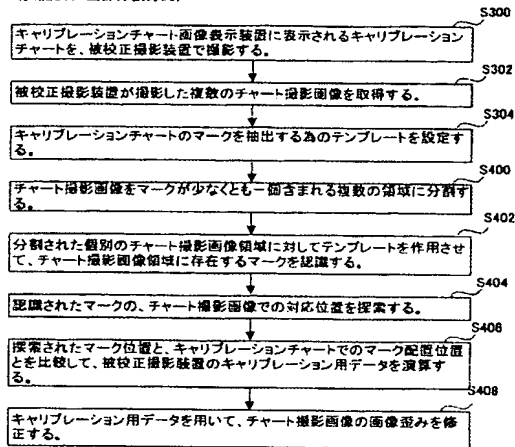 S300
キャリブレーションチャート画像表示装置に表示されるキャリブレーション
チャートを、被校正撮影装置で撮影する。
S302
被校正撮影装置が撮影した複数のチャート撮影画像を取得する。
S304
キャリブレーションチャートのマークを抽出する為のテンプレートを設定す
る。
S400
チャート撮影画像をマークが少なくとも一個含まれる複数の領域に分割す
る。
S402
分割された個別のチャート撮影画像領域に対してテンプレートを作用させ
て、チャート撮影画像領域に存在するマークを認識する。
S404
認識されたマークの、チャート撮影画像での対応位置を探索する。
S406
探索されたマーク位置と、キャリブレーションチャートでのマーク配置位置
とを比較して、被校正撮影装置のキャリブレーション用データを演算す
る。
S408
キャリブレーション用データを用いて、チャート撮影画像の画像歪みを修
正する。